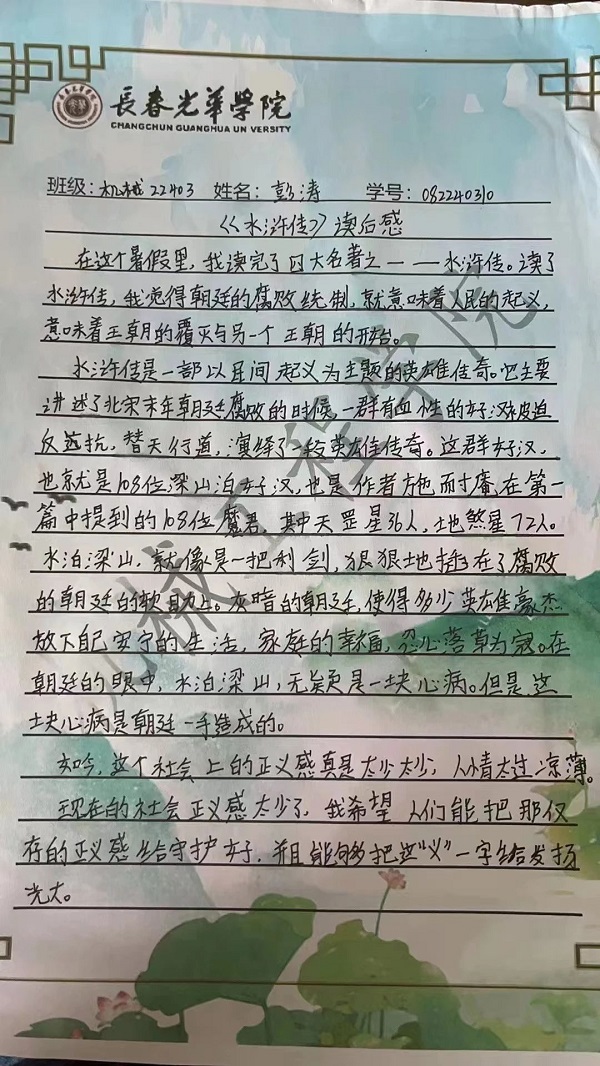 長春光華學院
CHANGCHUN GUANGHUA UN VERSITY
班级:机械22403 姓名:彭涛 学号:082240310
《水浒传》读后感
在这个暑假里,我读完了四大名著之一——水浒传。读了
水浒传,我觉得朝廷的腐败统制,就意味着人民的起义,
意味着王朝的覆灭与另一个王朝的开始。
水浒传是一部以民间起义为主题的英雄传奇。它主要
讲述了北宋末年朝廷腐败的时候,一群有血性的好汉被迫
反逆抗,替天行道,演绎了一段英雄传奇。这群好汉,
也就是108位梁山泊好汉,也是作者施耐庵在第一
篇中提到的108位魔君,其中天罡星36人,地煞星72人。
水泊梁山,就像是一把利剑,狠狠地插在了腐败
的朝廷的软肋上。灰暗的朝廷,使得多少英雄豪杰
放下自己安宁的生活,家庭的幸福,忍心落草为寇。在
朝廷的眼中,水泊梁山,无疑是一块心病。但是这
块心病是朝廷一手造成的。
如今,这个社会上的正义感真是太少太少,人情太过凉薄。
现在的社会正义感太少了,我希望人们能把那仅
存的正义感给守护好,并且能够把这“义”一字给发扬
光大。
机械工程学院